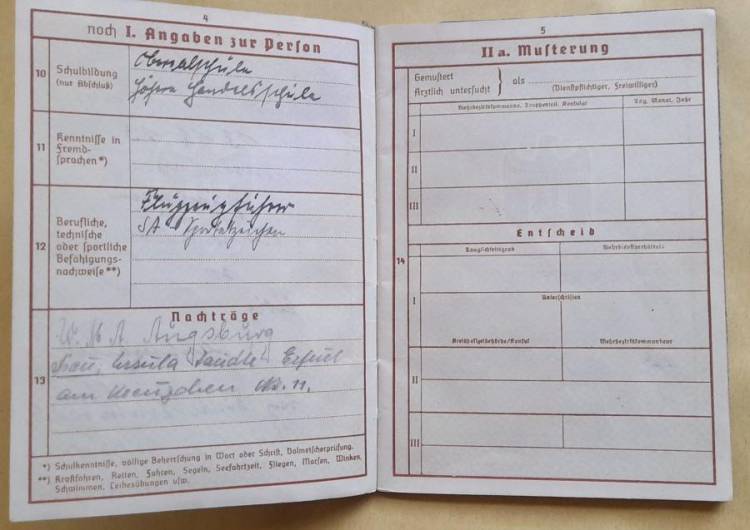 4
noch I. Angaben zur Person
10 Schulbildung
(nur Abschluß)
Oberrealschule
Höhere Handelsschule
11 Kenntnisse in
Fremd-
sprachen*)
12 Berufliche,
technische
oder sportliche
Befähigungs-
nachweise**)
Flugzeugführer
SA Sportabzeichen
Nachträge
13
W. M. A. Augsburg
Frau, Ursula Erfurt
am Nr. 11.
*) Schulkenntnisse, völlige Beherrschung in Wort oder Schrift, Dolmetscherprüfung.
**) Kraftfahren, Reiten, Fahren, Segeln, Seefahrtzeit, Fliegen, Morsen, Winken,
Schwimmen, Leibesübungen usw.
5
II a. Musterung
Gemustert
Ärztlich untersucht } als
(Dienstpflichtiger, Freiwilliger)
Wehrbezirkskommando, Truppenteil, Konsulat
Tag, Monat, Jahr
I
II
III
Entscheid
14
Tauglichkeitsgrad
Wehrdienstverhältnis
I
Unterschriften
Kreispolizeibehörde/Konsul
Wehrbezirkskommandeur
II
III